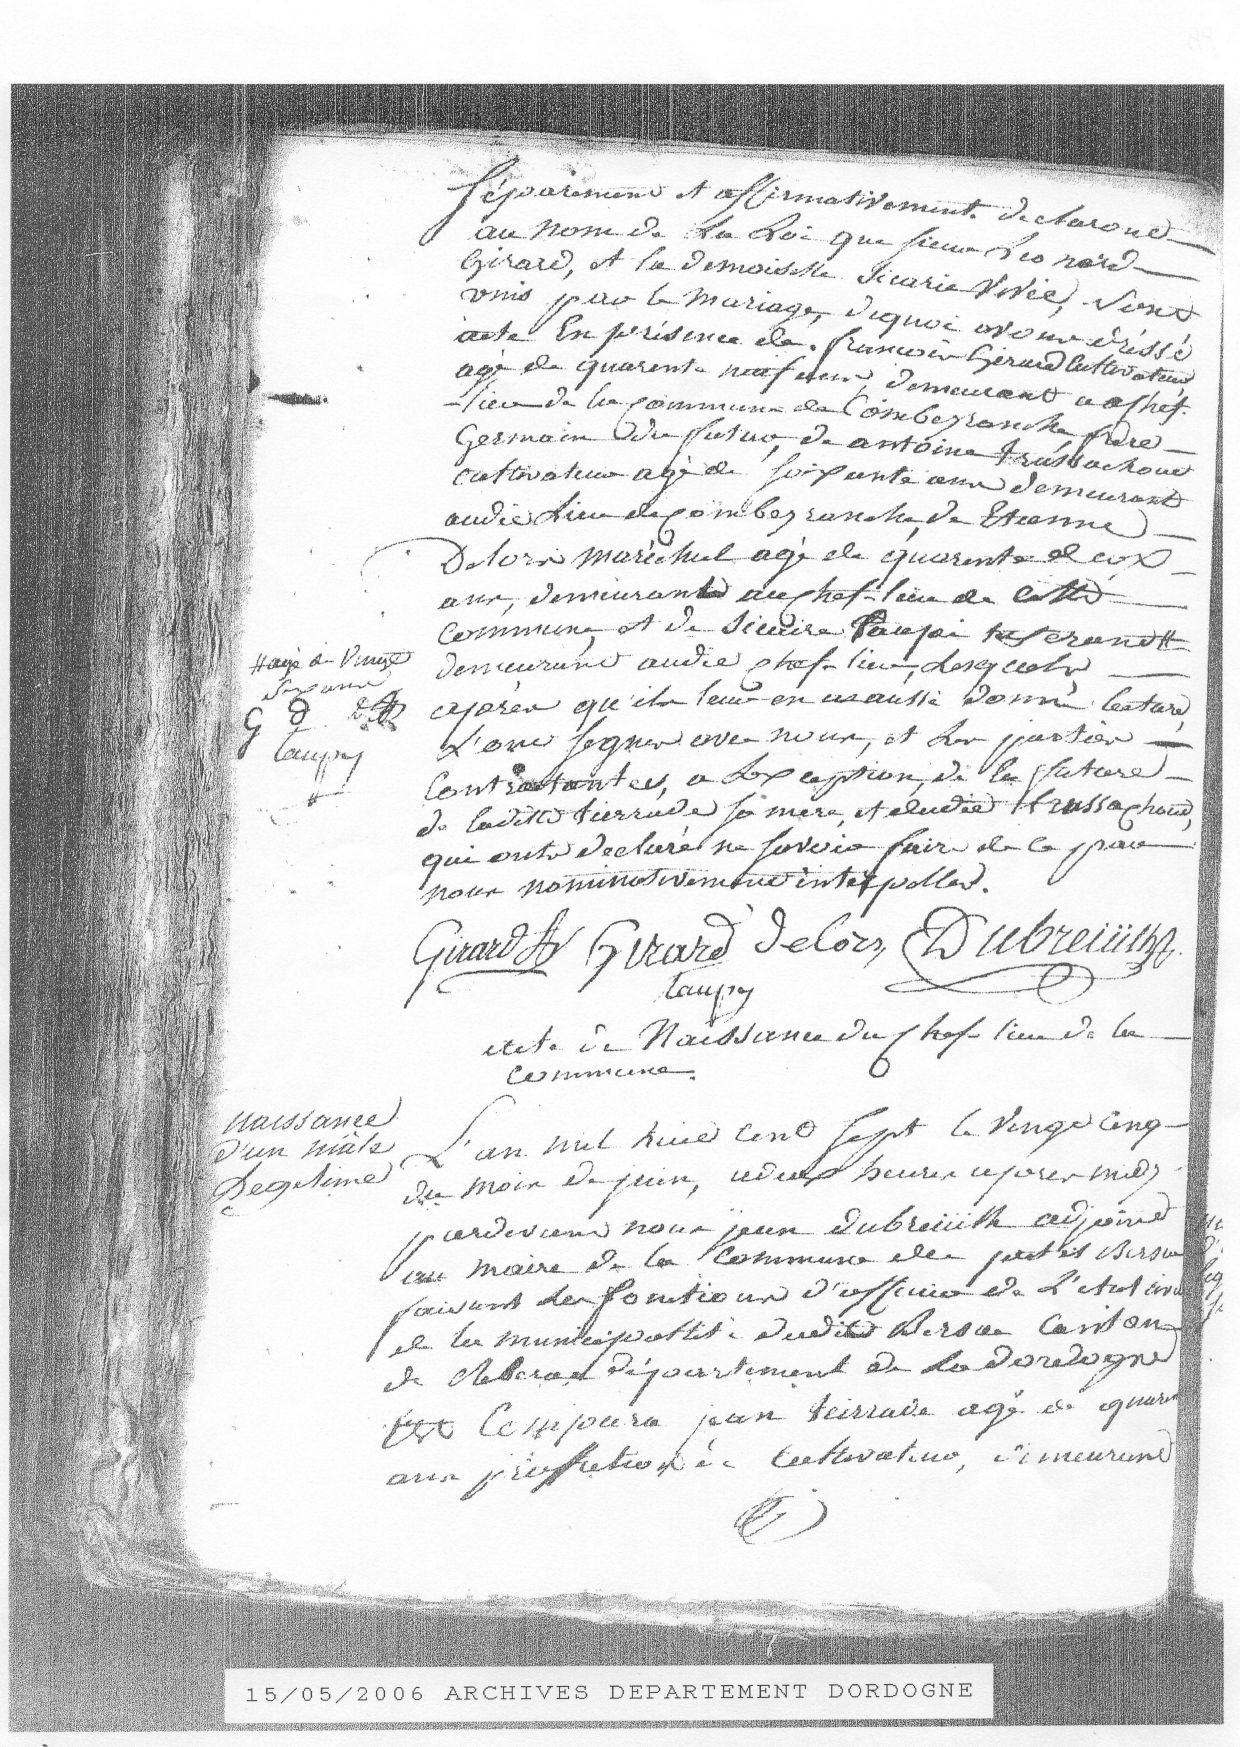 séparément et affirmativement declarons
au nom de La Loi que sieur Leonard
Girard, et la demoiselle Sicarie Vivie, Sont
unis par le mariage, dequoi avons dréssé
acte En présence de françois Girard Cultivateur,
agé de quarente neuf ans, demeurant au chef-
-lieu de la commune de Combeyranche, frère
Germain du futur, de antoine trussachoue
cultivateur agé de soixante ans demeurant
audit Lieu de Combeyranche, de Etienne
Delors maréchal agé de quarente deux
ans, demeurant au chef-lieu de Cette
Commune, et de Sicaire Taupi tisserand #
demeurant audit chef-lieu, Lesquels
après qu'ils leur en a aussi donné lecture,
L'ont signer avec nous, et Les parties
Contractantes, a L'exception, de la future
de ladite tierrade sa mere, et dudit trussachoue,
qui onts declaré ne savoir faire de ce par
nous nominativement interpellés.
# agé de Vingt
Six ans
G D
taupy
Girard Girard Delors, Dubreiiilh
taupy
acte de Naissance du Chef-lieu de la
Commune.
naissance
d'un mâle
Legitime
L'an mil huit Cent Sept le Vingt Cinq
du mois de juin, a deux heures apres midy
pardevant nous jean dubreiiilh adjoint
au maire de la Commune de petit Bersac
faisant Les fonctions d'officier de L'état civil
de la municipallité dudit Bersac Canton
de Riberac département de La Dordogne
Est Comparu jean tierrade agé de quarente
ans profession de Cultivateur, demeurant
15/05/2006 ARCHIVES DEPARTEMENT DORDOGNE